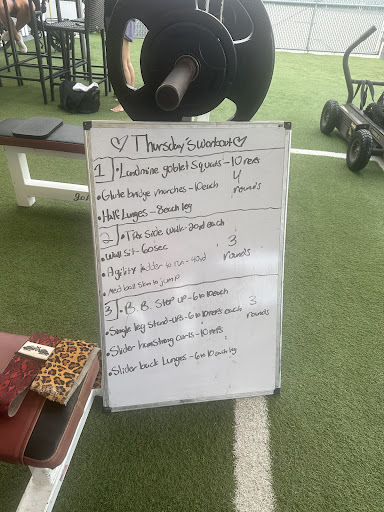 ♡ Thursday's Workout ♡
1 • Landmine goblet squats - 10 reps
• Glute bridge marches - 10 each
4 rounds
• Half Lunges - 8 each leg
2 • Side walk - 20yd each
• Wall sit - 60sec
• Agility ladder to run - 40yd
3 rounds
• Med ball slam to jump
3 • B.B. Step up - 6 to 10 each
• Single leg stand-ups - 6 to 10 reps each
3 rounds
• Slider hamstring curls - 10 reps
• Slider back lunges - 6 to 10 each leg